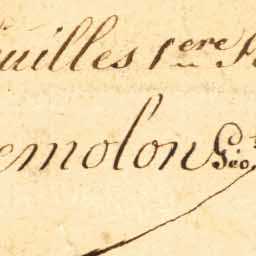 uilles 1ere S
emolon Géo.